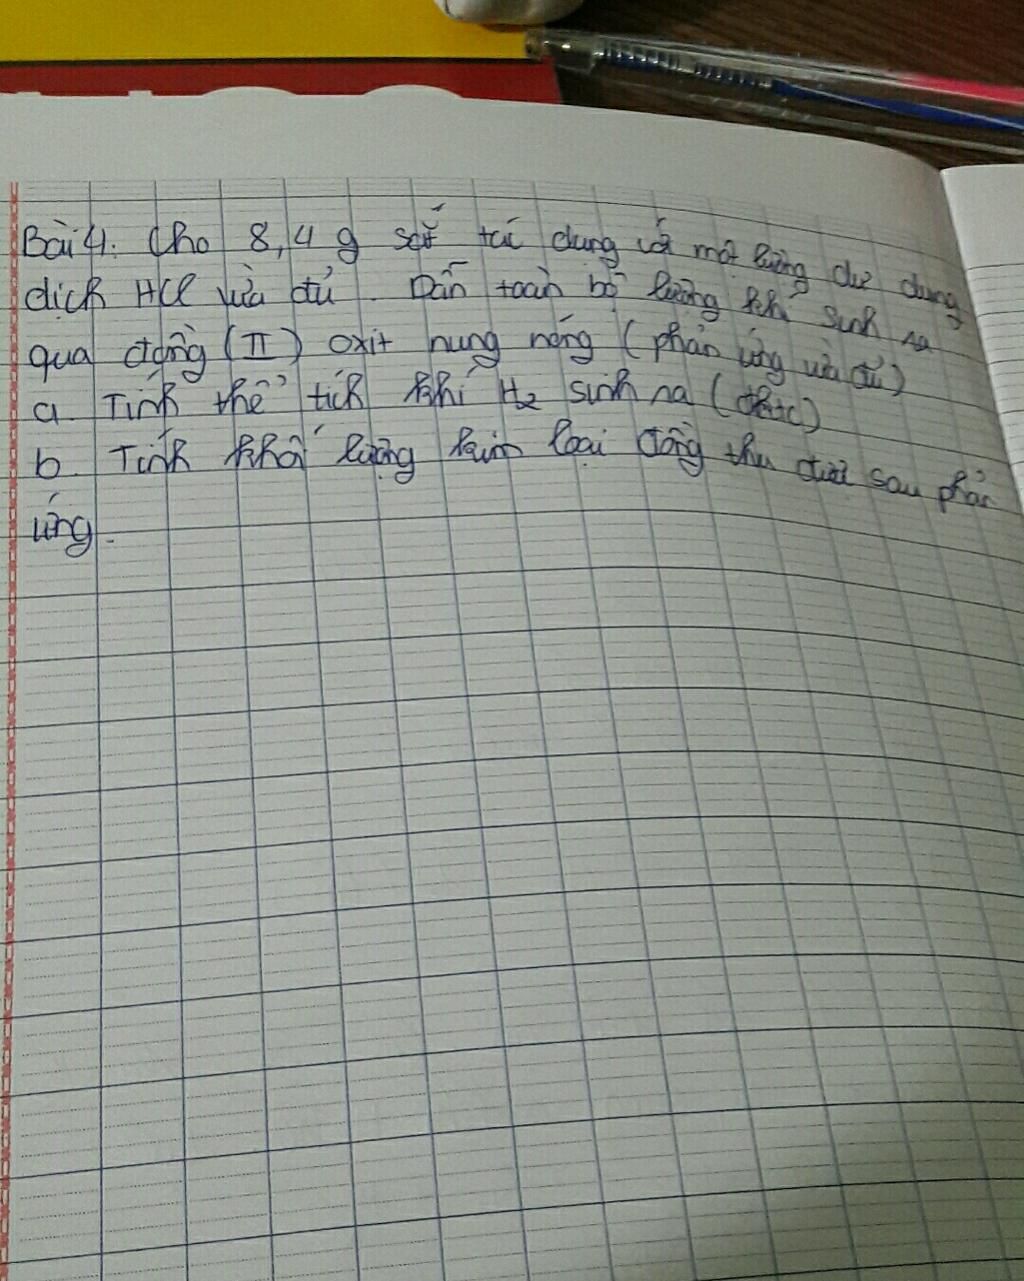 Bài 4: Cho 8,4 g sắt tác dụng với một lượng dư dung
dịch HCl vừa đủ. Dẫn toàn bộ lượng khí sinh ra
qua đồng (II) oxit nung nóng (phản ứng vừa đủ)
a. Tính thể tích khí H2 sinh ra (đktc)
b. Tính khối lượng kim loại đồng thu được sau phản
ứng.